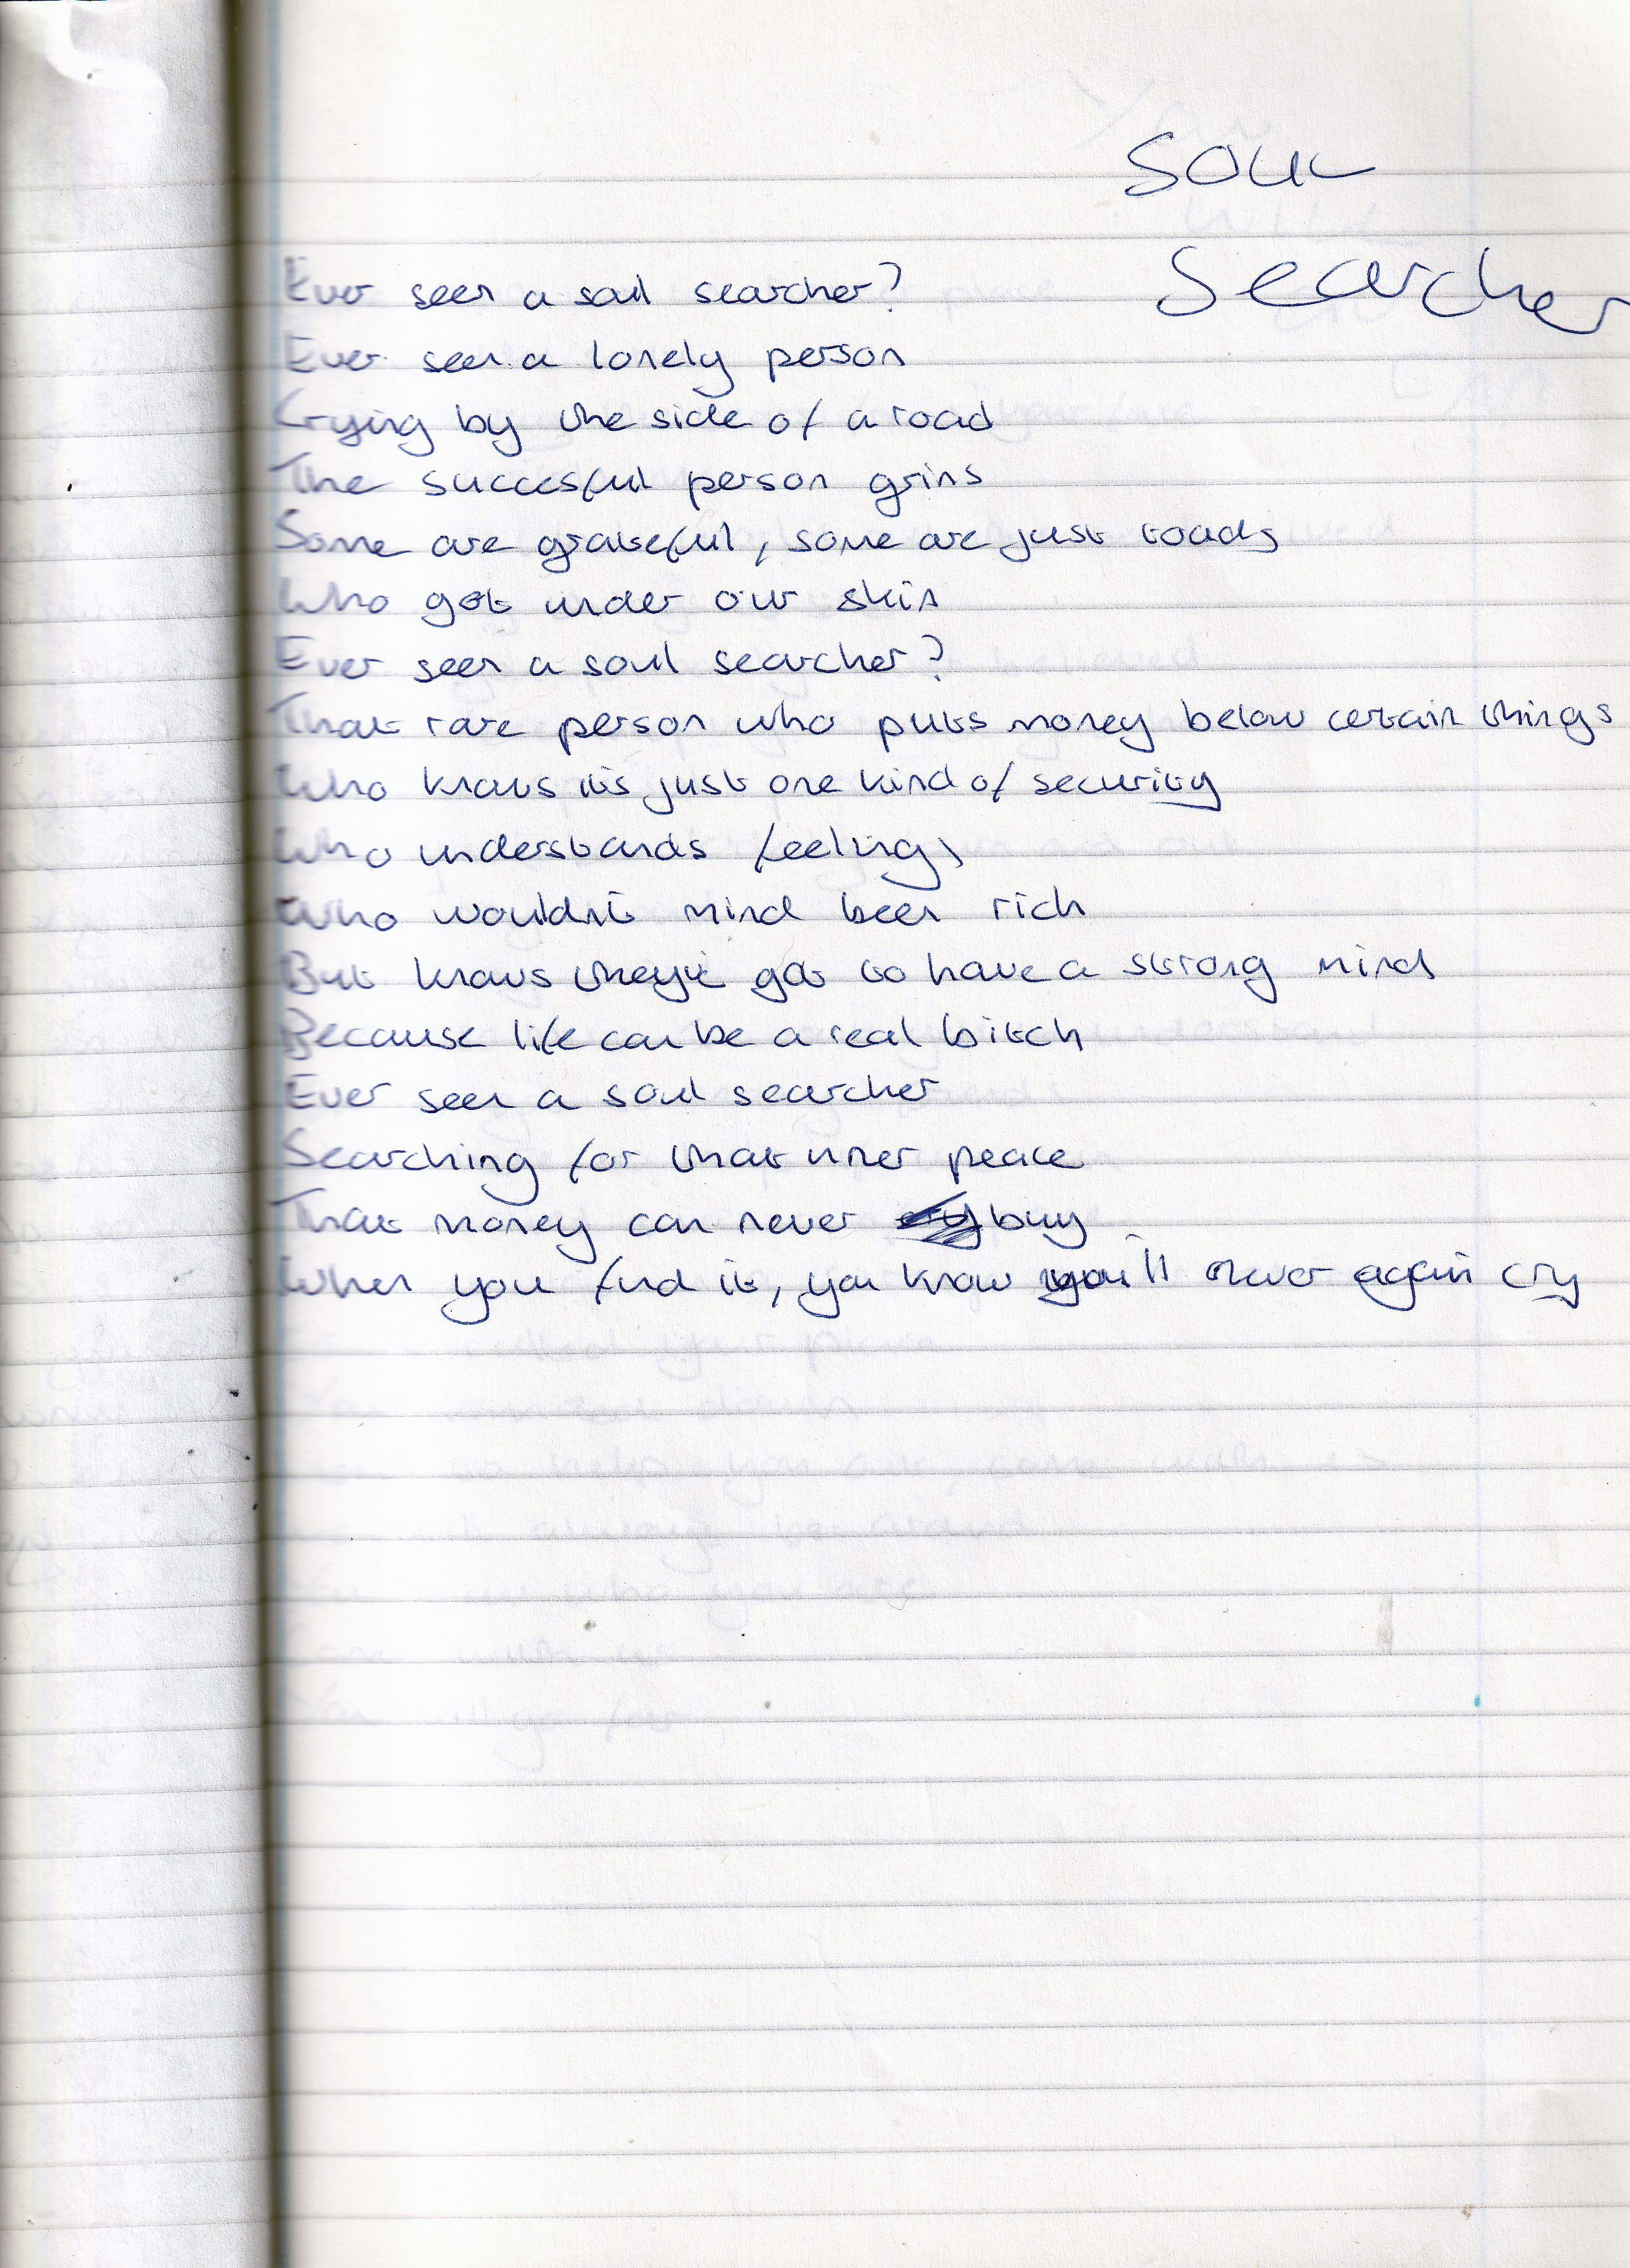 Soul
Searcher
Ever seen a soul searcher?
Ever seen a lonely person
Crying by the side of a road
The succesful person grins
Some are grateful, some are just toads
Who get under our skin
Ever seen a soul searcher?
That rare person who puts money below certain things
Who knows its just one kind of security
Who understands feelings
Who wouldn't mind been rich
But knows they've got to have a strong mind
Because life can be a real bitch
Ever seen a soul searcher
Searching for that inner peace
That money can never buy
When you find it, you know you'll never again cry